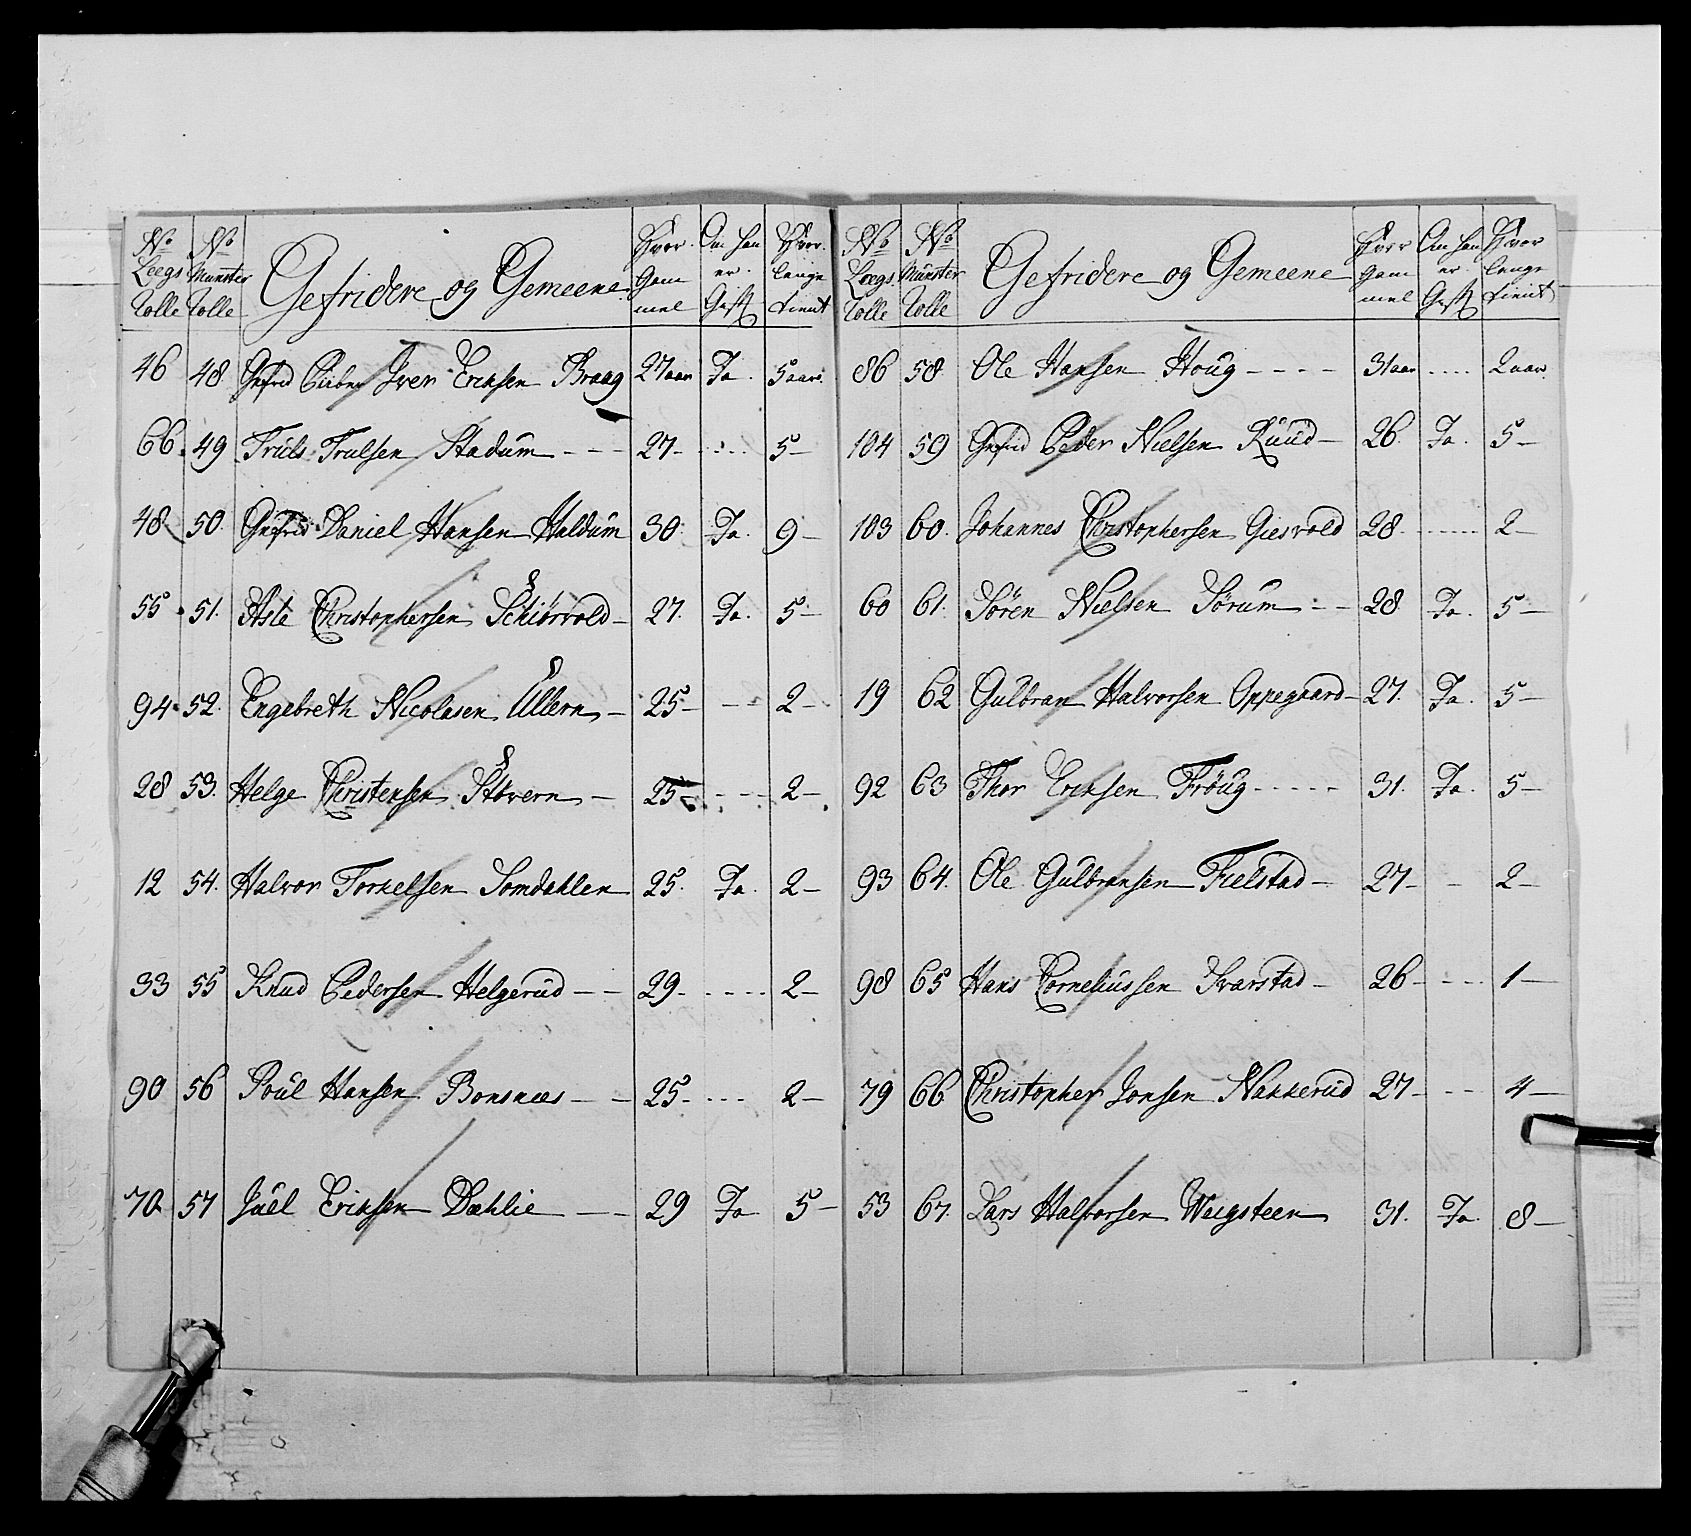 No Loegs Rolle | No Munster Rolle | Gefridere og Gemeene | Hvor Gammel | Om han er Gift | Hvor lenge tient
46 48. Gefrid Iver Ericksen Braag 27 aar Ja. 5 aar.
66. 49 Truls Trulsen Stadum - - - 27 - .... 5 -
48 50. Gefrid Daniel Hansen Haldum 30. Ja. 9 -
55. 51. Aste Christophersen Schiörvold - 27. Ja. 5 -
94. 52. Engebreth Nicolasen Ullern - 25 - - - - 2 -
28 53. Helge Christensen Støvern - 25 - - - - 2 -
12 54. Halvor Torkelsen Somdahlen 25. Ja. 2 -
33 55 Knud Pedersen Helgerud - - 29 - - - - 2 -
90 56 Poul Hansen Bonsnæs - - 25 - - - - 2 -
70 57 Juel Ericksen Dæhlie - - 29 Ja 5 -
No Loegs Rolle | No Munster Rolle | Gefridere og Gemeene | Hvor Gammel | Om han er Gift | Hvor lenge tient
86 58 Ole Hansen Houg - - - - 31 aar .... 2 aar.
104 59 Gefrid Peder Nielsen Ruud - 26. Ja. 5 -
103 60. Johannes Christophersen Giesvold 28. ..... 2 -
60 61. Sören Nielsen Sørum - - 28 Ja. 5 -
19 62 Gulbran Halvorsen Oppegaard - 27. Ja. 5 -
92 63 Thor Ericksen Fröug - - - - - 31. Ja. 5 -
93 64. Ole Gulbransen Fielstad - 27 - - 2 -
98 65 Hans Corneliussen Svarstad - 26 - - - - 1 -
79 66 Christopher Jonsen Nakkerud 27 - - - 4 -
53 67. Lars Halvorsen Weigsteen 31. Ja. 8 -